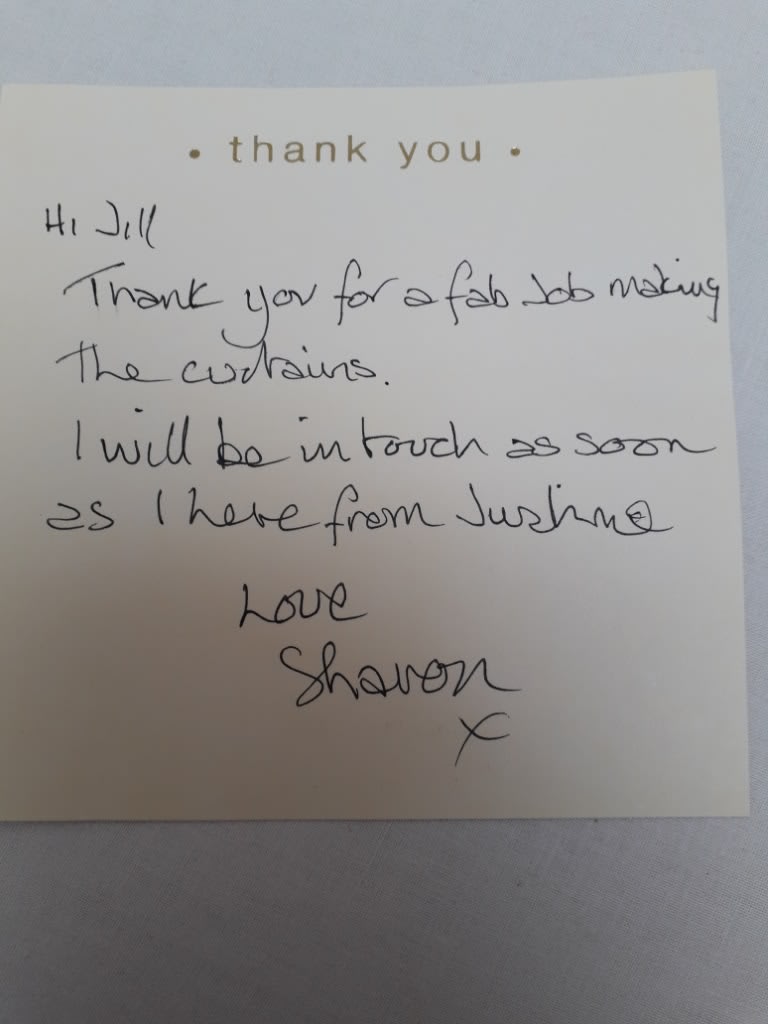 • thank you •
Hi Jill
Thank you for a fab Job making
the curtains.
I will be in touch as soon
as I here from Justine
Love
Sharon
x